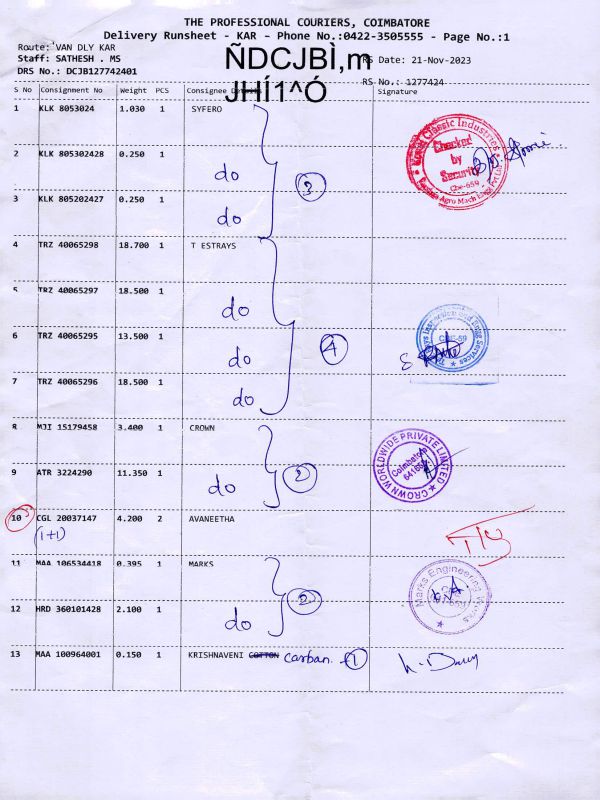 THE PROFESSIONAL COURIERS, COIMBATORE
Delivery Runsheet - KAR - Phone No.:0422-3505555 - Page No.:1
Route: VAN DLY KAR
Staff: SATHESH . MS
DRS No.: DCJB127742401
ÑDCJBÌ,m
JHÍ1^Ó
RS Date: 21-Nov-2023
RS No.: 1277424
S No Consignment No Weight PCS Consignee Details Signature
1 KLK 8053024 1.030 1 SYFERO
2 KLK 805302428 0.250 1 do
3 KLK 805202427 0.250 1 do
3
Classic Industries
Checked
by
Security
Cbe-659
Agro Mach
4 TRZ 40065298 18.700 1 T ESTRAYS
5 TRZ 40065297 18.500 1 do
6 TRZ 40065295 13.500 1 do
7 TRZ 40065296 18.500 1 do
4
8 MJI 15179458 3.400 1 CROWN
9 ATR 3224290 11.350 1 do
2
CROWN WORLDWIDE PRIVATE LIMITED
Coimbatore
10 CGL 20037147 4.200 2 AVANEETHA
(1+1)
11 MAA 106534418 0.395 1 MARKS
12 HRD 360101428 2.100 1 do
2
Marks Engineering Works
13 MAA 100964001 0.150 1 KRISHNAVENI COTTON carban. 1